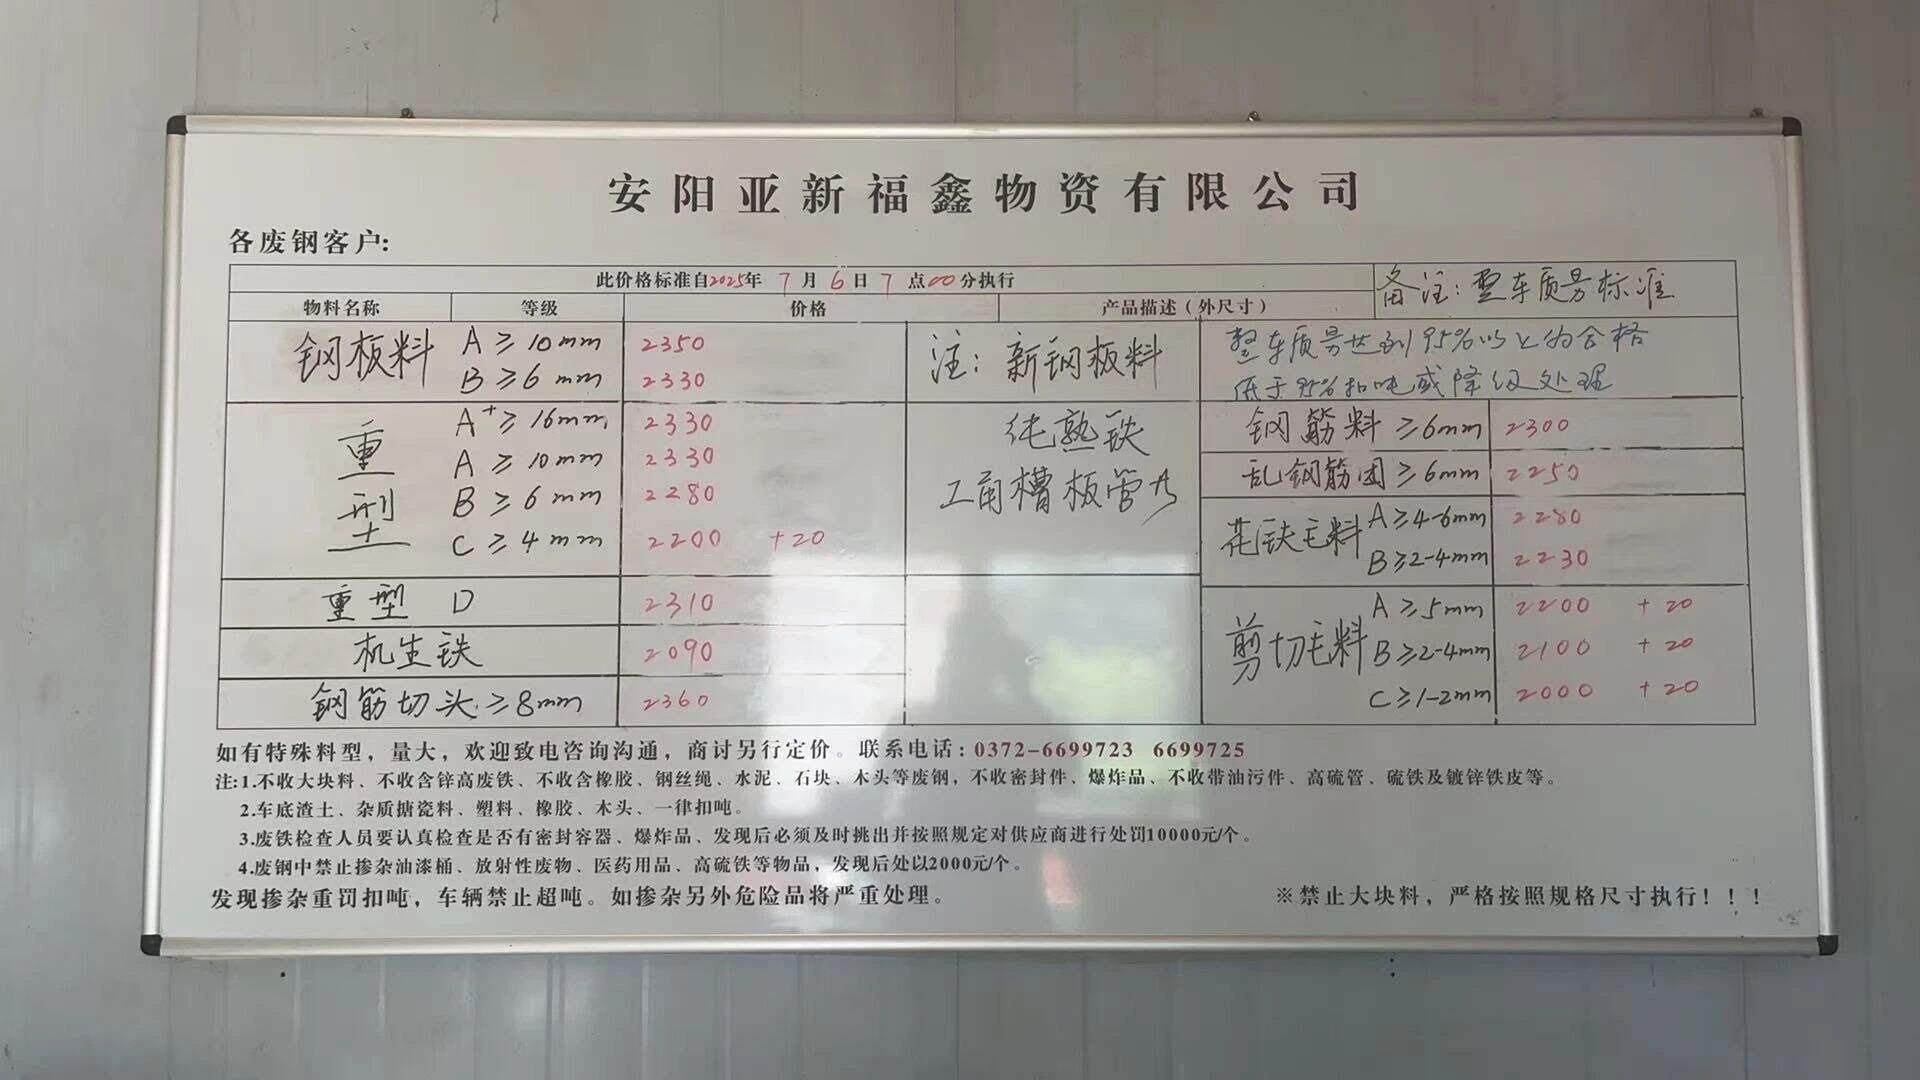 安阳亚新福鑫物资有限公司
各废钢客户:
此价格标准自2025年 7月6日7点00分执行
备注：整车质量标准
物料名称 等级 价格 产品描述（外尺寸）
钢板料 A ≥ 10mm 2350
B ≥ 6mm 2330
注：新钢板料
整车质量达到95%以上的合格
低于95%扣吨或降级处理
重型 A⁺ ≥ 16mm 2330
A ≥ 10mm 2330
B ≥ 6mm 2280
C ≥ 4mm 2200 +20
纯熟铁
工角槽板管
重型 D 2310
机生铁 2090
钢筋切头 ≥8mm 2360
钢筋料 ≥6mm 2300
乱钢筋团 ≥6mm 2250
花铁毛料 A ≥4-6mm 2280
B ≥2-4mm 2230
剪切毛料 A ≥5mm 2200 +20
B ≥2-4mm 2100 +20
C ≥1-2mm 2000 +20
如有特殊料型，量大，欢迎致电咨询沟通，商讨另行定价。联系电话：0372-6699723 6699725
注:1.不收大块料、不收含锌高废铁、不收含橡胶、钢丝绳、水泥、石块、木头等废钢，不收密封件、爆炸品、不收带油污件、高硫管、硫铁及镀锌铁皮等。
2.车底渣土、杂质搪瓷料、塑料、橡胶、木头、一律扣吨。
3.废铁检查人员要认真检查是否有密封容器、爆炸品、发现后必须及时挑出并按照规定对供应商进行处罚10000元/个。
4.废钢中禁止掺杂油漆桶、放射性废物、医药用品、高硫铁等物品，发现后处以2000元/个。
发现掺杂重罚扣吨，车辆禁止超吨。如掺杂另外危险品将严重处理。
※禁止大块料，严格按照规格尺寸执行！！！